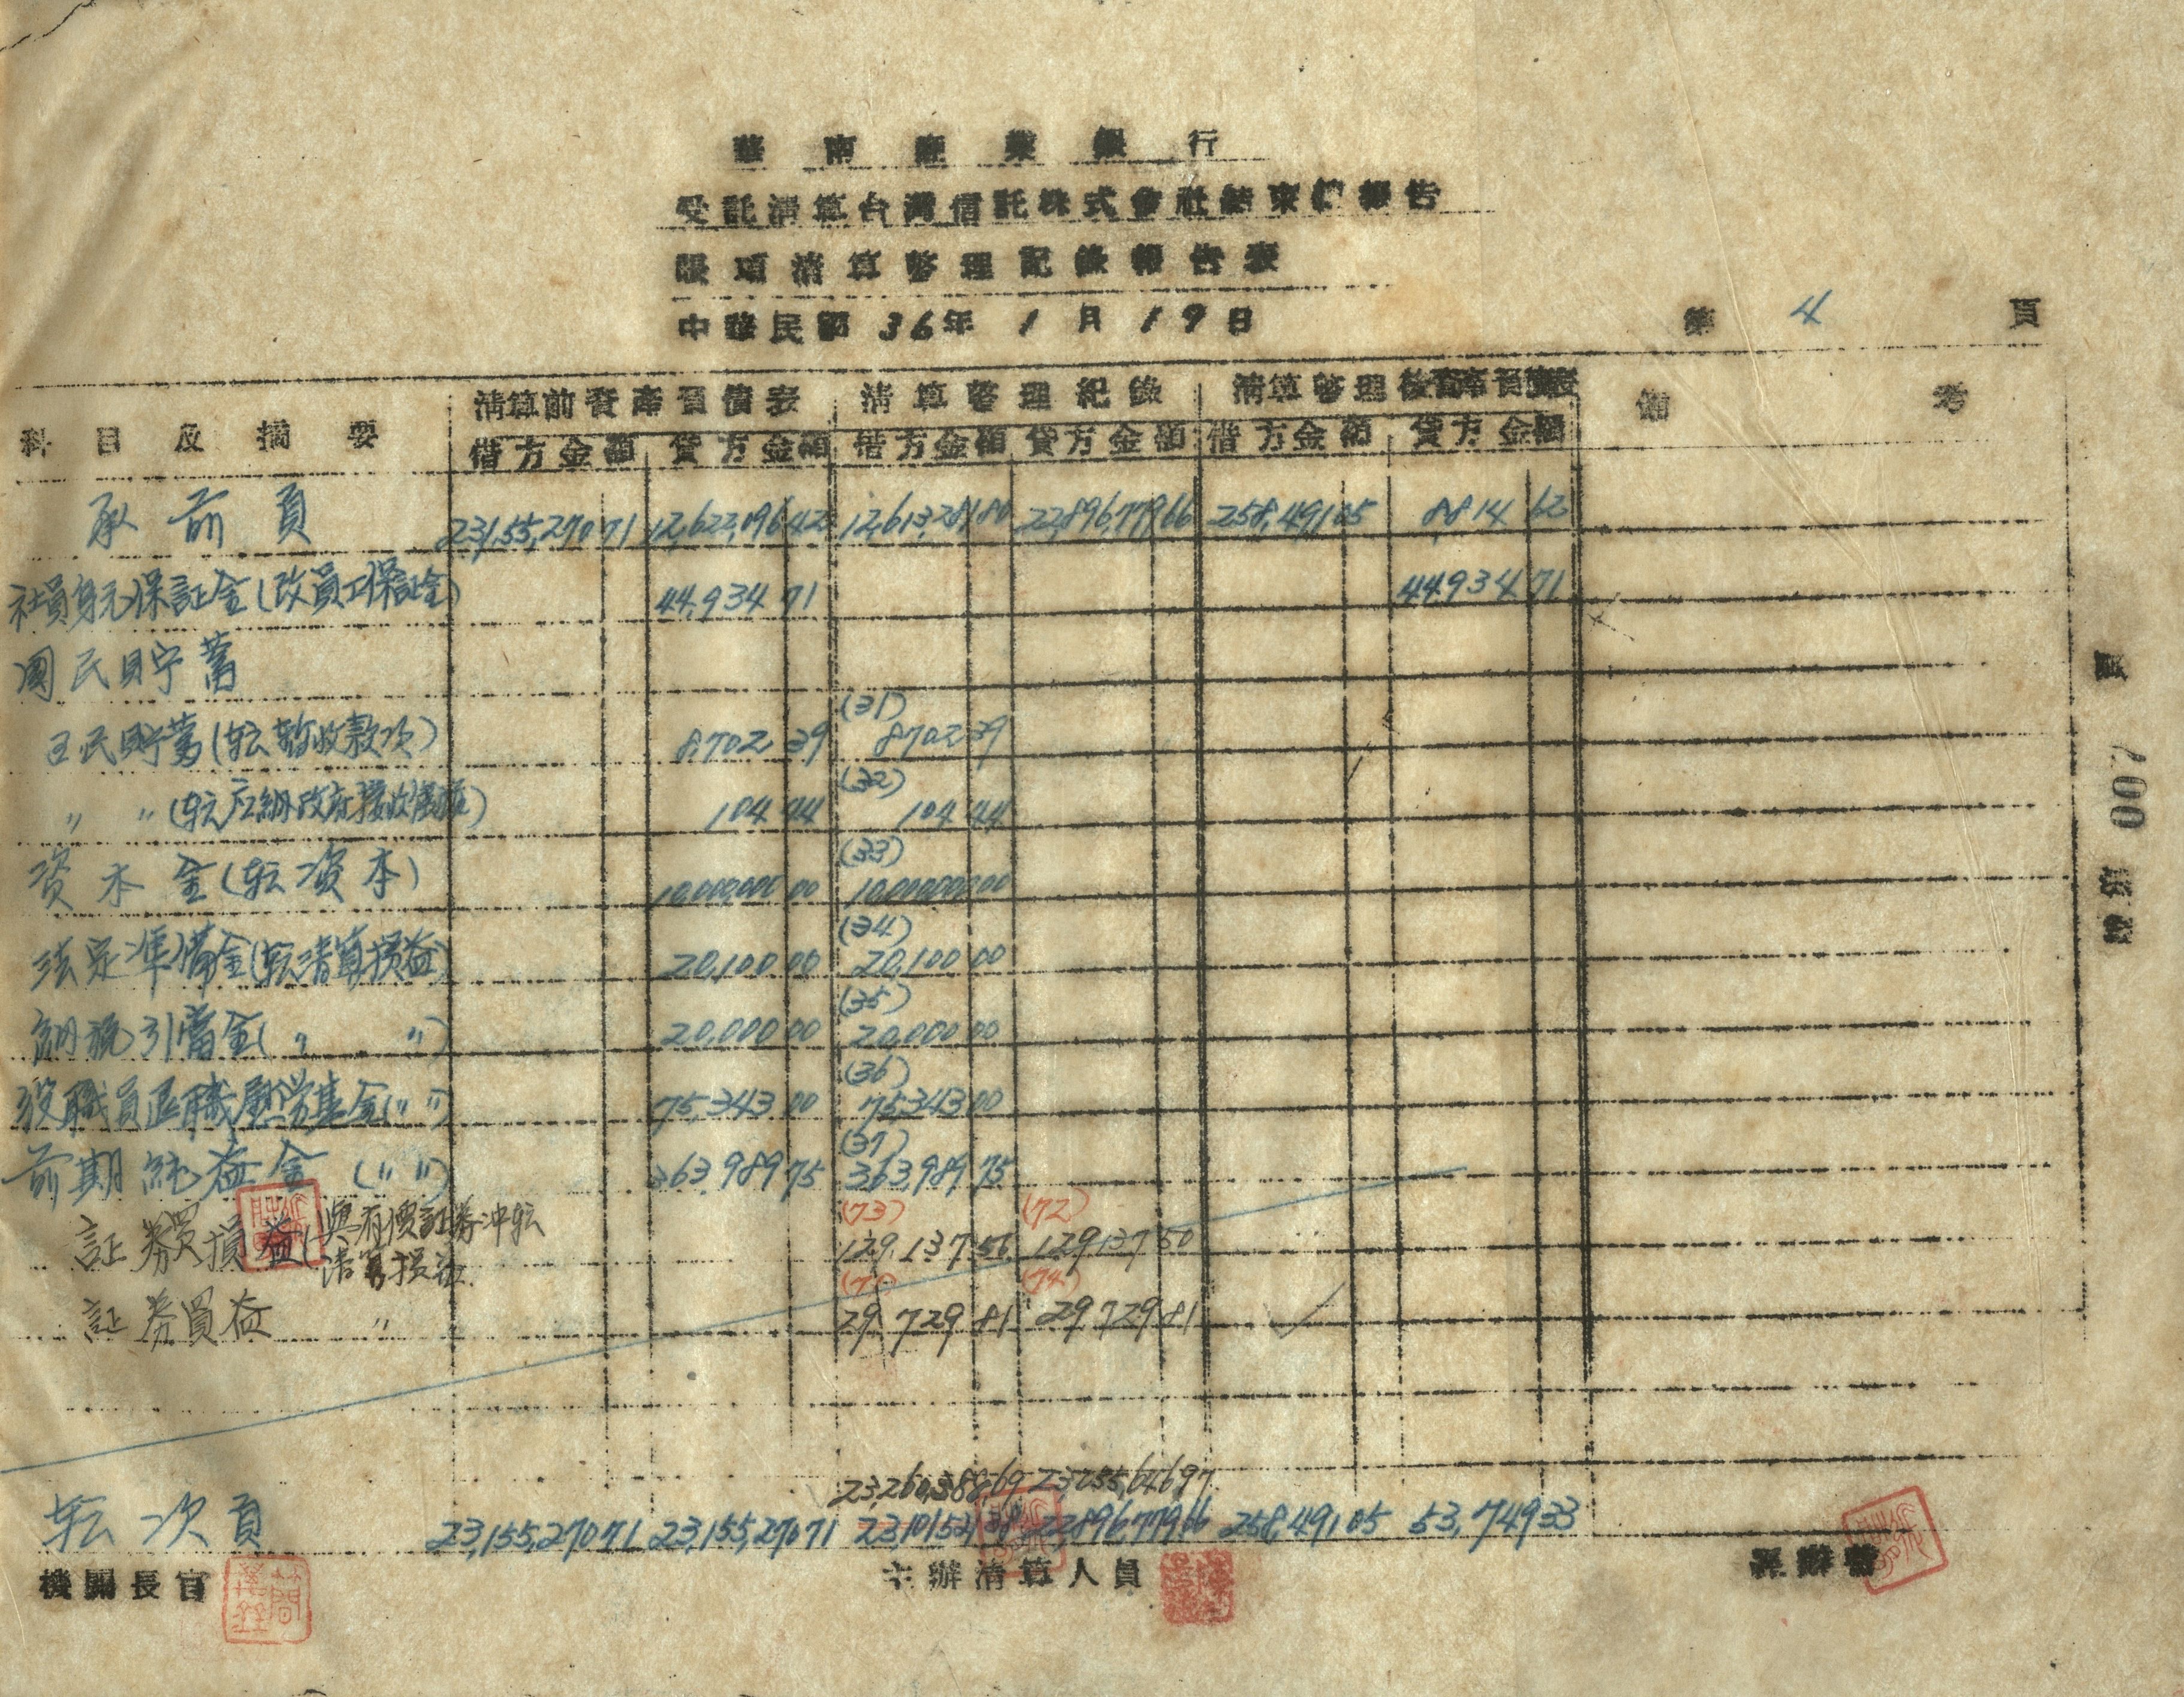 華南產業銀行
受託清算台灣信託株式會社結束總報告
賬項清算整理記錄報告表
中華民國 36年 1月 19日
第 4 頁
科目及摘要 清算前資產負債表 清算整理紀錄 清算整理後資產負債表 備考
借方金額 貸方金額 借方金額 貸方金額 借方金額 貸方金額
承前頁 23,155,270 71 12,622,096 42 12,613,281 80 22,896,779 66 258,491 05 8,814 62
社員身元保証金(改員工保証金) 44,934 71 44,934 71
國民貯蓄
(31)
国民貯蓄(転暫收款項) 8,702 39 8702 39
(32)
〃 〃(転应納政府接收債權) 104 44 104 44
(33)
資本金(転資本) 10,000,000 00 10,000,000 00
(34)
法定準備金(転清算損益) 20,100 00 20,100 00
(35)
納税引當金(〃 〃) 20,000 00 20,000 00
(36)
役職員退職慰労基金(〃 〃) 75,343 00 75,343 00
(37)
前期純益金(〃 〃) 363,989 75 363,989 75
(73) (72)
証券買損益(與有價証券冲転 129,137 50 129,137 50
清算損益
(71) (74)
証券買益 〃 29,729 81 29,729 81
23,260,388 69 23,055,646 97
転次頁 23,155,270 71 23,155,270 71 23,101,521 38 22,896,779 66 258,491 05 53,749 33
機關長官 主辦清算人員 經辦員
總號 007 頁